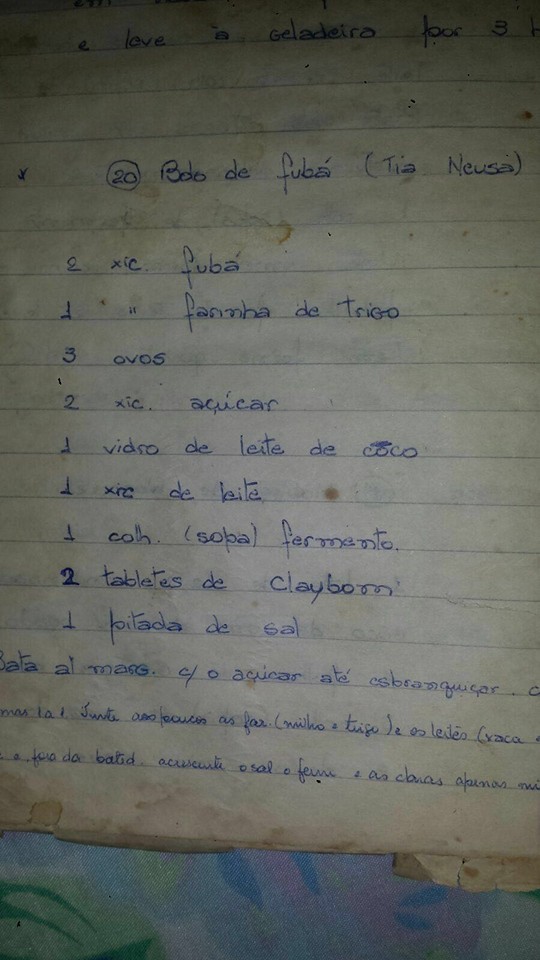 e leve à geladeira por 3 h
* 20 Bolo de fubá (Tia Neusa)
2 xic. fubá
1 " farinha de trigo
3 ovos
2 xic. açúcar
1 vidro de leite de côco
1 xic de leite
1 colh. (sopa) fermento.
2 tabletes de Claybom
1 pitada de sal
Bata a marg. c/ o açúcar até esbranquiçar.
mas 1 a 1. Junte aos poucos as far. (milho e trigo) e os leites (vaca
e a fora da batid. acrescente o sal o ferm e as claras apenas